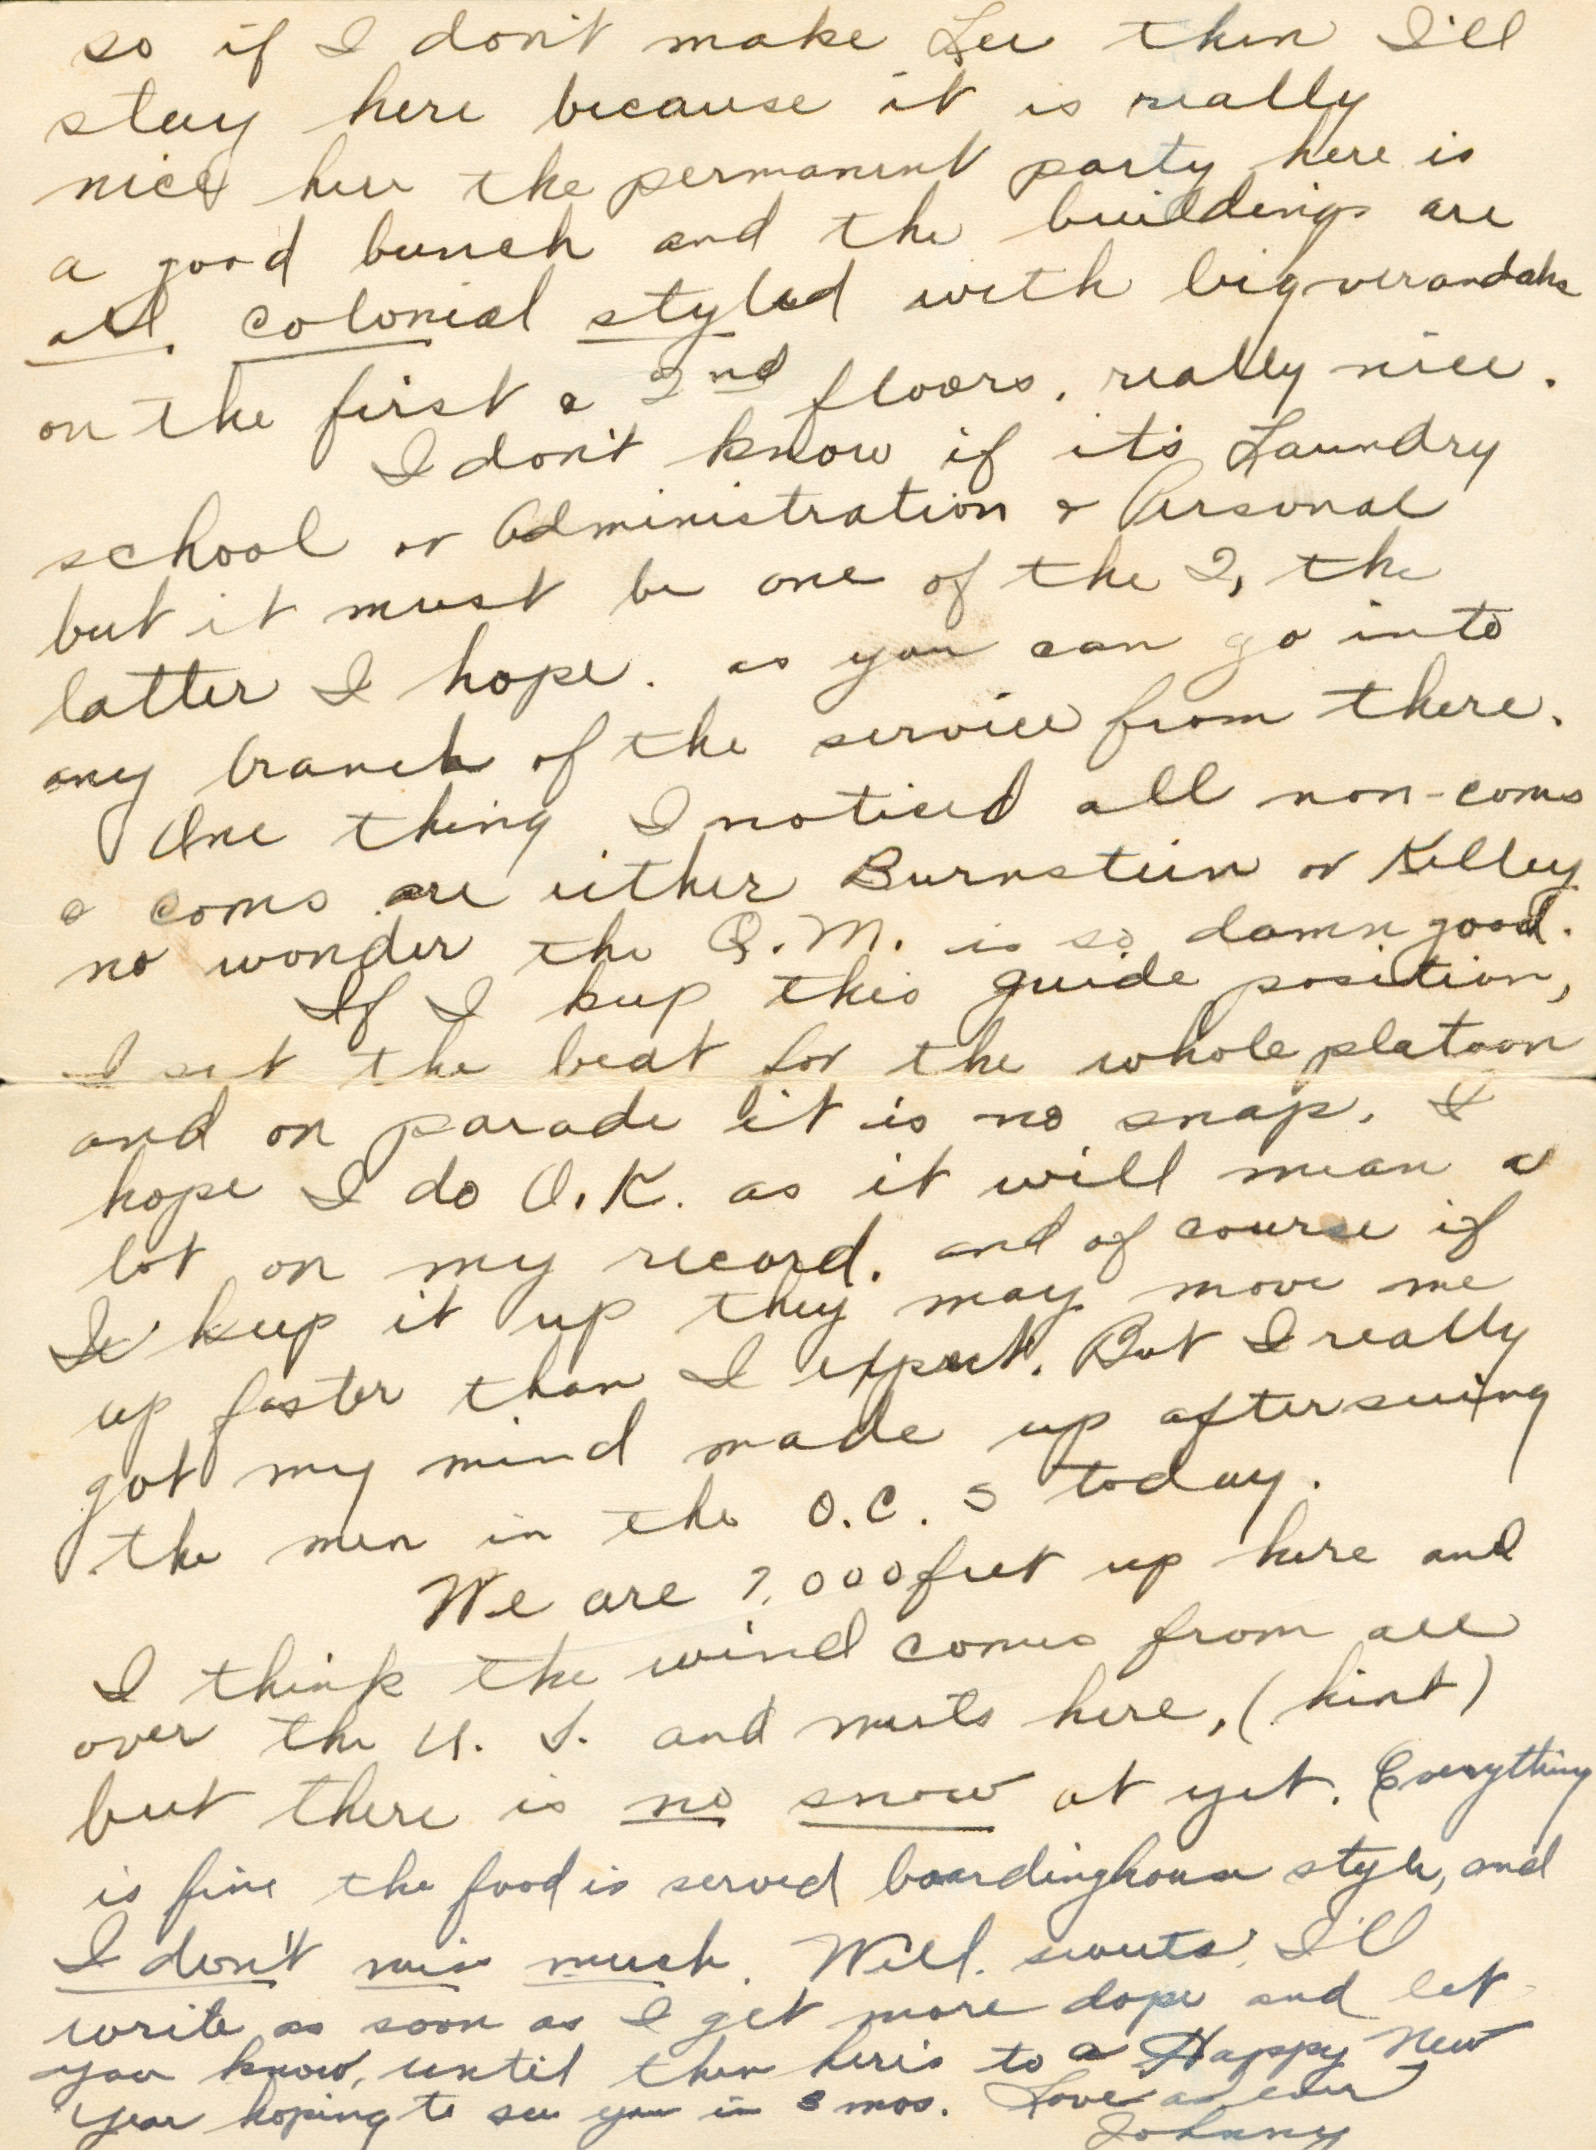 so if I don't make Lee then I'll
stay here because it is really
nice here the permanent party here is
a good bunch and the buildings are
all, colonial styled with big verandahs
on the first & 2nd floors, really nice.
I don't know if it's Laundry
school or Administration & Personal
but it must be one of the 2, the
latter I hope. as you can go into
any branch of the service from there.
One thing I noticed all non-coms
& coms are either Burnstein or Kelley
no wonder the Q.M. is so damn good.
If I keep this guide position,
I set the beat for the whole platoon
and on parade it is no snap. I
hope I do O.K. as it will mean a
lot on my record. and of course if
I keep it up they may move me
up faster than I expect. But I really
got my mind made up after seeing
the men in the O.C.S today.
We are 7,000 feet up here and
I think the wind comes from all
over the U.S. and meets here, (hint)
but there is no snow at yet. Everything
is fine the food is served boardinghouse style, and
I don't miss much. Well. sweets, I'll
write as soon as I get more dope and let
you know, until then here's to a Happy New
Year hoping to see you in 3 mos. Love as ever
Johnny